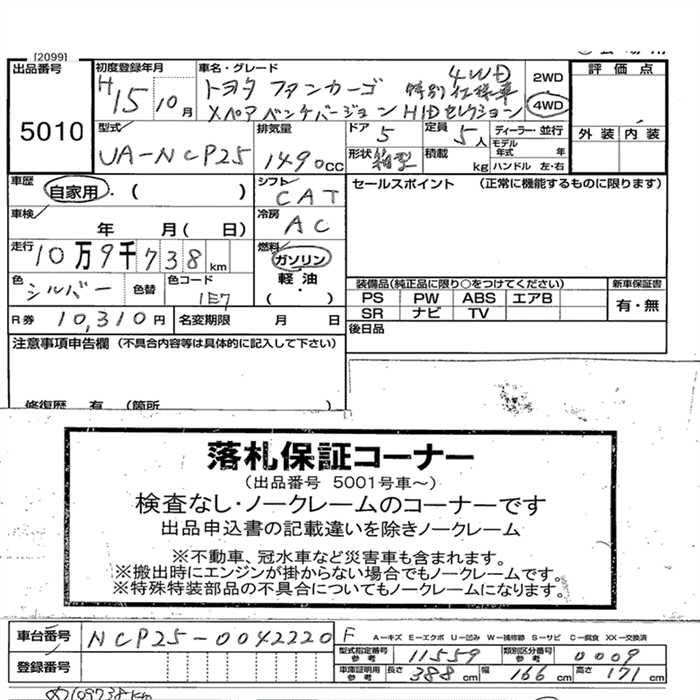 [2099]
出品番号
5010
初度登録年月
H15 10月
車名・グレード
トヨタ ファンカーゴ 特別仕様車 4WD
Xペアベンチバージョン HIDセレクション
2WD
4WD
評価点
外装 内装
型式
UA-NCP25
排気量
1490cc
ドア 5
形状 箱型
定員 5人
積載 kg
ディーラー・並行
モデル年式 年
ハンドル 左・右
車歴
自家用・( )
シフト
CAT
セールスポイント (正常に機能するものに限ります)
車検
年 月( 日)
冷房
AC
走行
10万9千738km
燃料
ガソリン
軽油
・
( )
色
シルバー
色替
色コード
1E7
装備品(純正品に限り○をつけてください)
PS PW ABS エアB
SR ナビ TV
新車保証書
有・無
R券 10,310円
名変期限 月 日
後日品
注意事項申告欄 (不具合内容等は具体的に記入して下さい)
修復歴 有 (箇所
落札保証コーナー
(出品番号 5001号車〜)
検査なし・ノークレームのコーナーです
出品申込書の記載違いを除きノークレーム
※不動車、冠水車など災害車も含まれます。
※搬出時にエンジンが掛からない場合でもノークレームです。
※特殊特装部品の不具合についてもノークレームになります。
車台番号 NCP25-0042220
F A-キズ E-エクボ U-凹み W-補修跡 S-サビ C-腐食 XX-交換済
型式指定番号参考 11559
類別区分番号参考 0009
登録番号
車庫証明用参考 長さ 388cm 幅 166cm 高さ 171cm